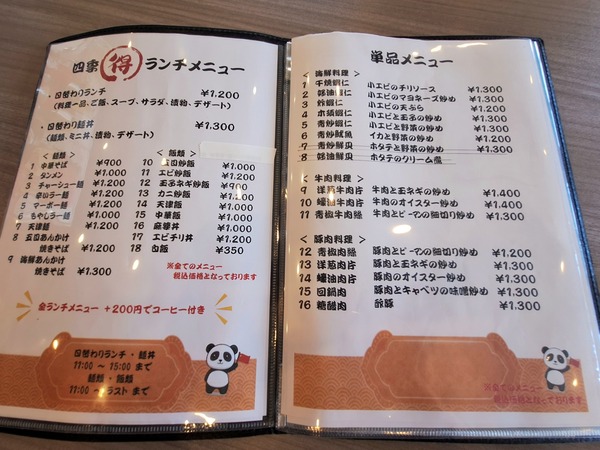 四季 得 ランチメニュー
・日替わりランチ ¥1.200
(料理一品、ご飯、スープ、サラダ、漬物、デザート)
・日替わり麺丼 ¥1.300
(麺類、ミニ丼、漬物、デザート)
< 麺類 >
1 中華そば ¥900
2 タンメン ¥1.000
3 チャーシュー麺 ¥1.200
4 辛いラー麺 ¥1.000
5 マーボー麺 ¥1.200
6 もやしラー麺 ¥1.000
7 天津麺 ¥1.200
8 五目あんかけ
焼きそば ¥1.200
9 海鮮あんかけ
焼きそば ¥1.300
< 飯類 >
10 五目炒飯 ¥1.000
11 エビ炒飯 ¥1.200
12 玉ネギ炒飯 ¥900
13 カニ炒飯 ¥1.200
14 天津飯 ¥1.000
15 中華飯 ¥1.000
16 麻婆丼 ¥1.000
17 エビチリ丼 ¥1.200
18 白飯 ¥350
※全てのメニュー
税込価格となっております
全ランチメニュー +200円でコーヒー付き
日替わりランチ・麺丼
11:00 ～ 15:00 まで
麺類・飯類
11:00 ～ ラスト まで
単品メニュー
< 海鮮料理 >
1 干焼蝦仁 小エビのチリソース ¥1.300
2 蝦仁 小エビのマヨネーズ炒め ¥1.300
3 蝦仁 小エビの天ぷら ¥1.200
4 蝦仁 小エビと玉ネギの炒め ¥1.300
5 青炒蝦仁 小エビと野菜の炒め ¥1.300
6 青炒魷魚 イカと野菜の炒め ¥1.300
7 青炒鮮貝 ホタテと野菜の炒め ¥1.300
8 油鮮貝 ホタテのクリーム煮
< 牛肉料理 >
9 洋葱牛肉片 牛肉と玉ネギの炒め ¥1.400
10 蠔油牛肉片 牛肉のオイスター炒め ¥1.400
11 青椒牛肉絲 牛肉とピーマンの細切り炒め ¥1.300
< 豚肉料理 >
12 青椒肉絲 豚肉とピーマンの細切り炒め ¥1.200
13 洋葱肉片 豚肉と玉ネギの炒め ¥1.300
14 蠔油肉片 豚肉のオイスター炒め ¥1.300
15 回鍋肉 豚肉とキャベツの味噌炒め ¥1.300
16 糖醋肉 酢豚 ¥1.300
※全てのメニュー
税込価格となっております